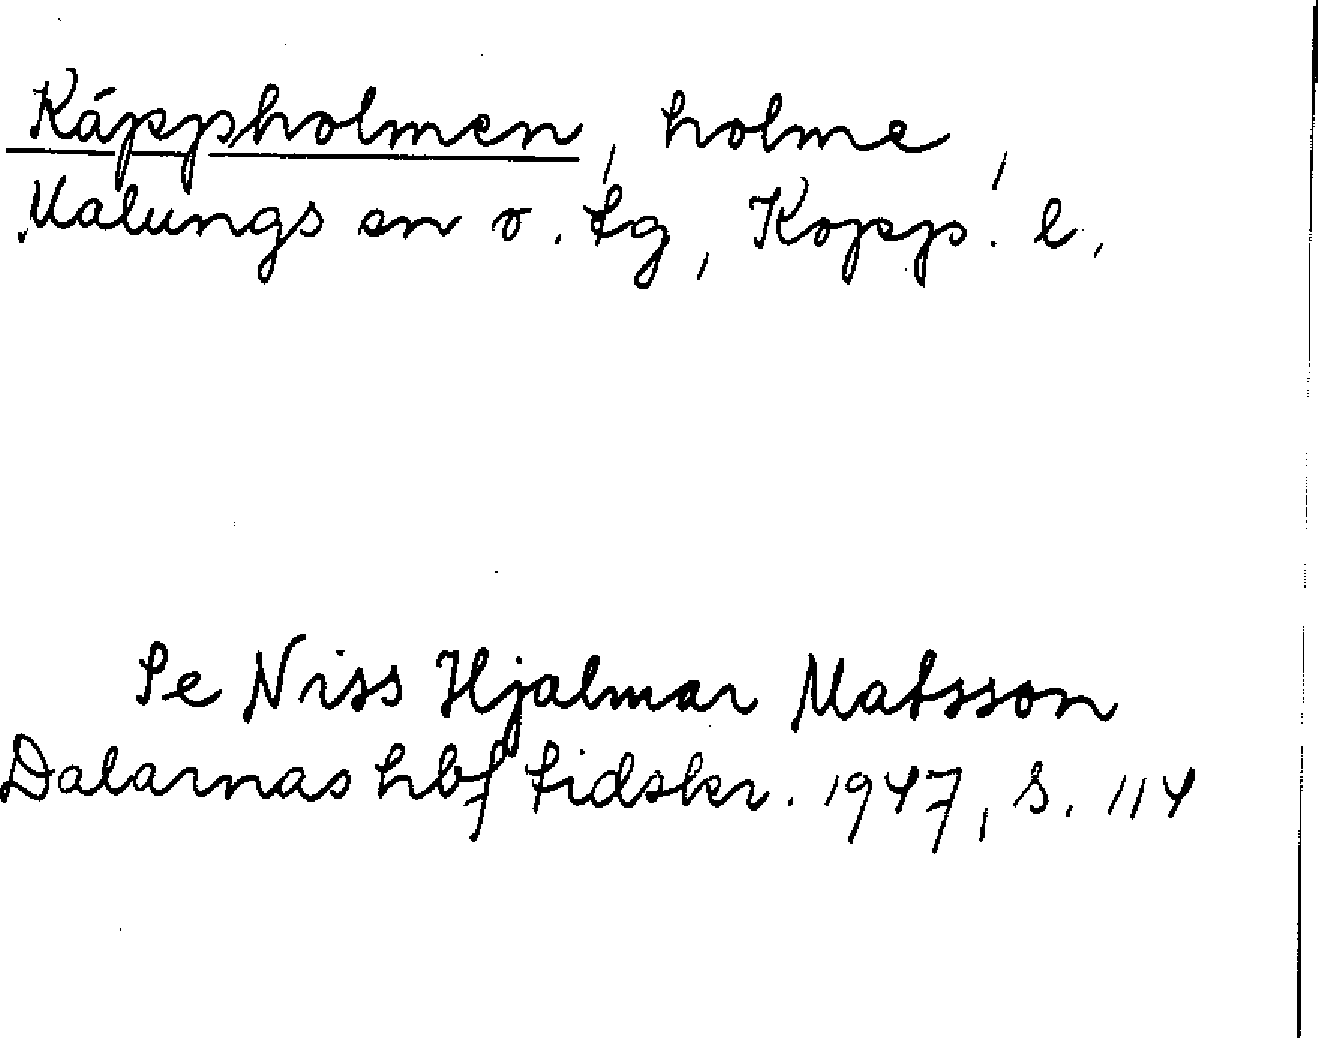 Káppholmen, holme,
Malungs sn o. tg, Kopp. l.
Se Niss Hjalmar Matsson
Dalarnas hbf tidskr. 1947, s. 114